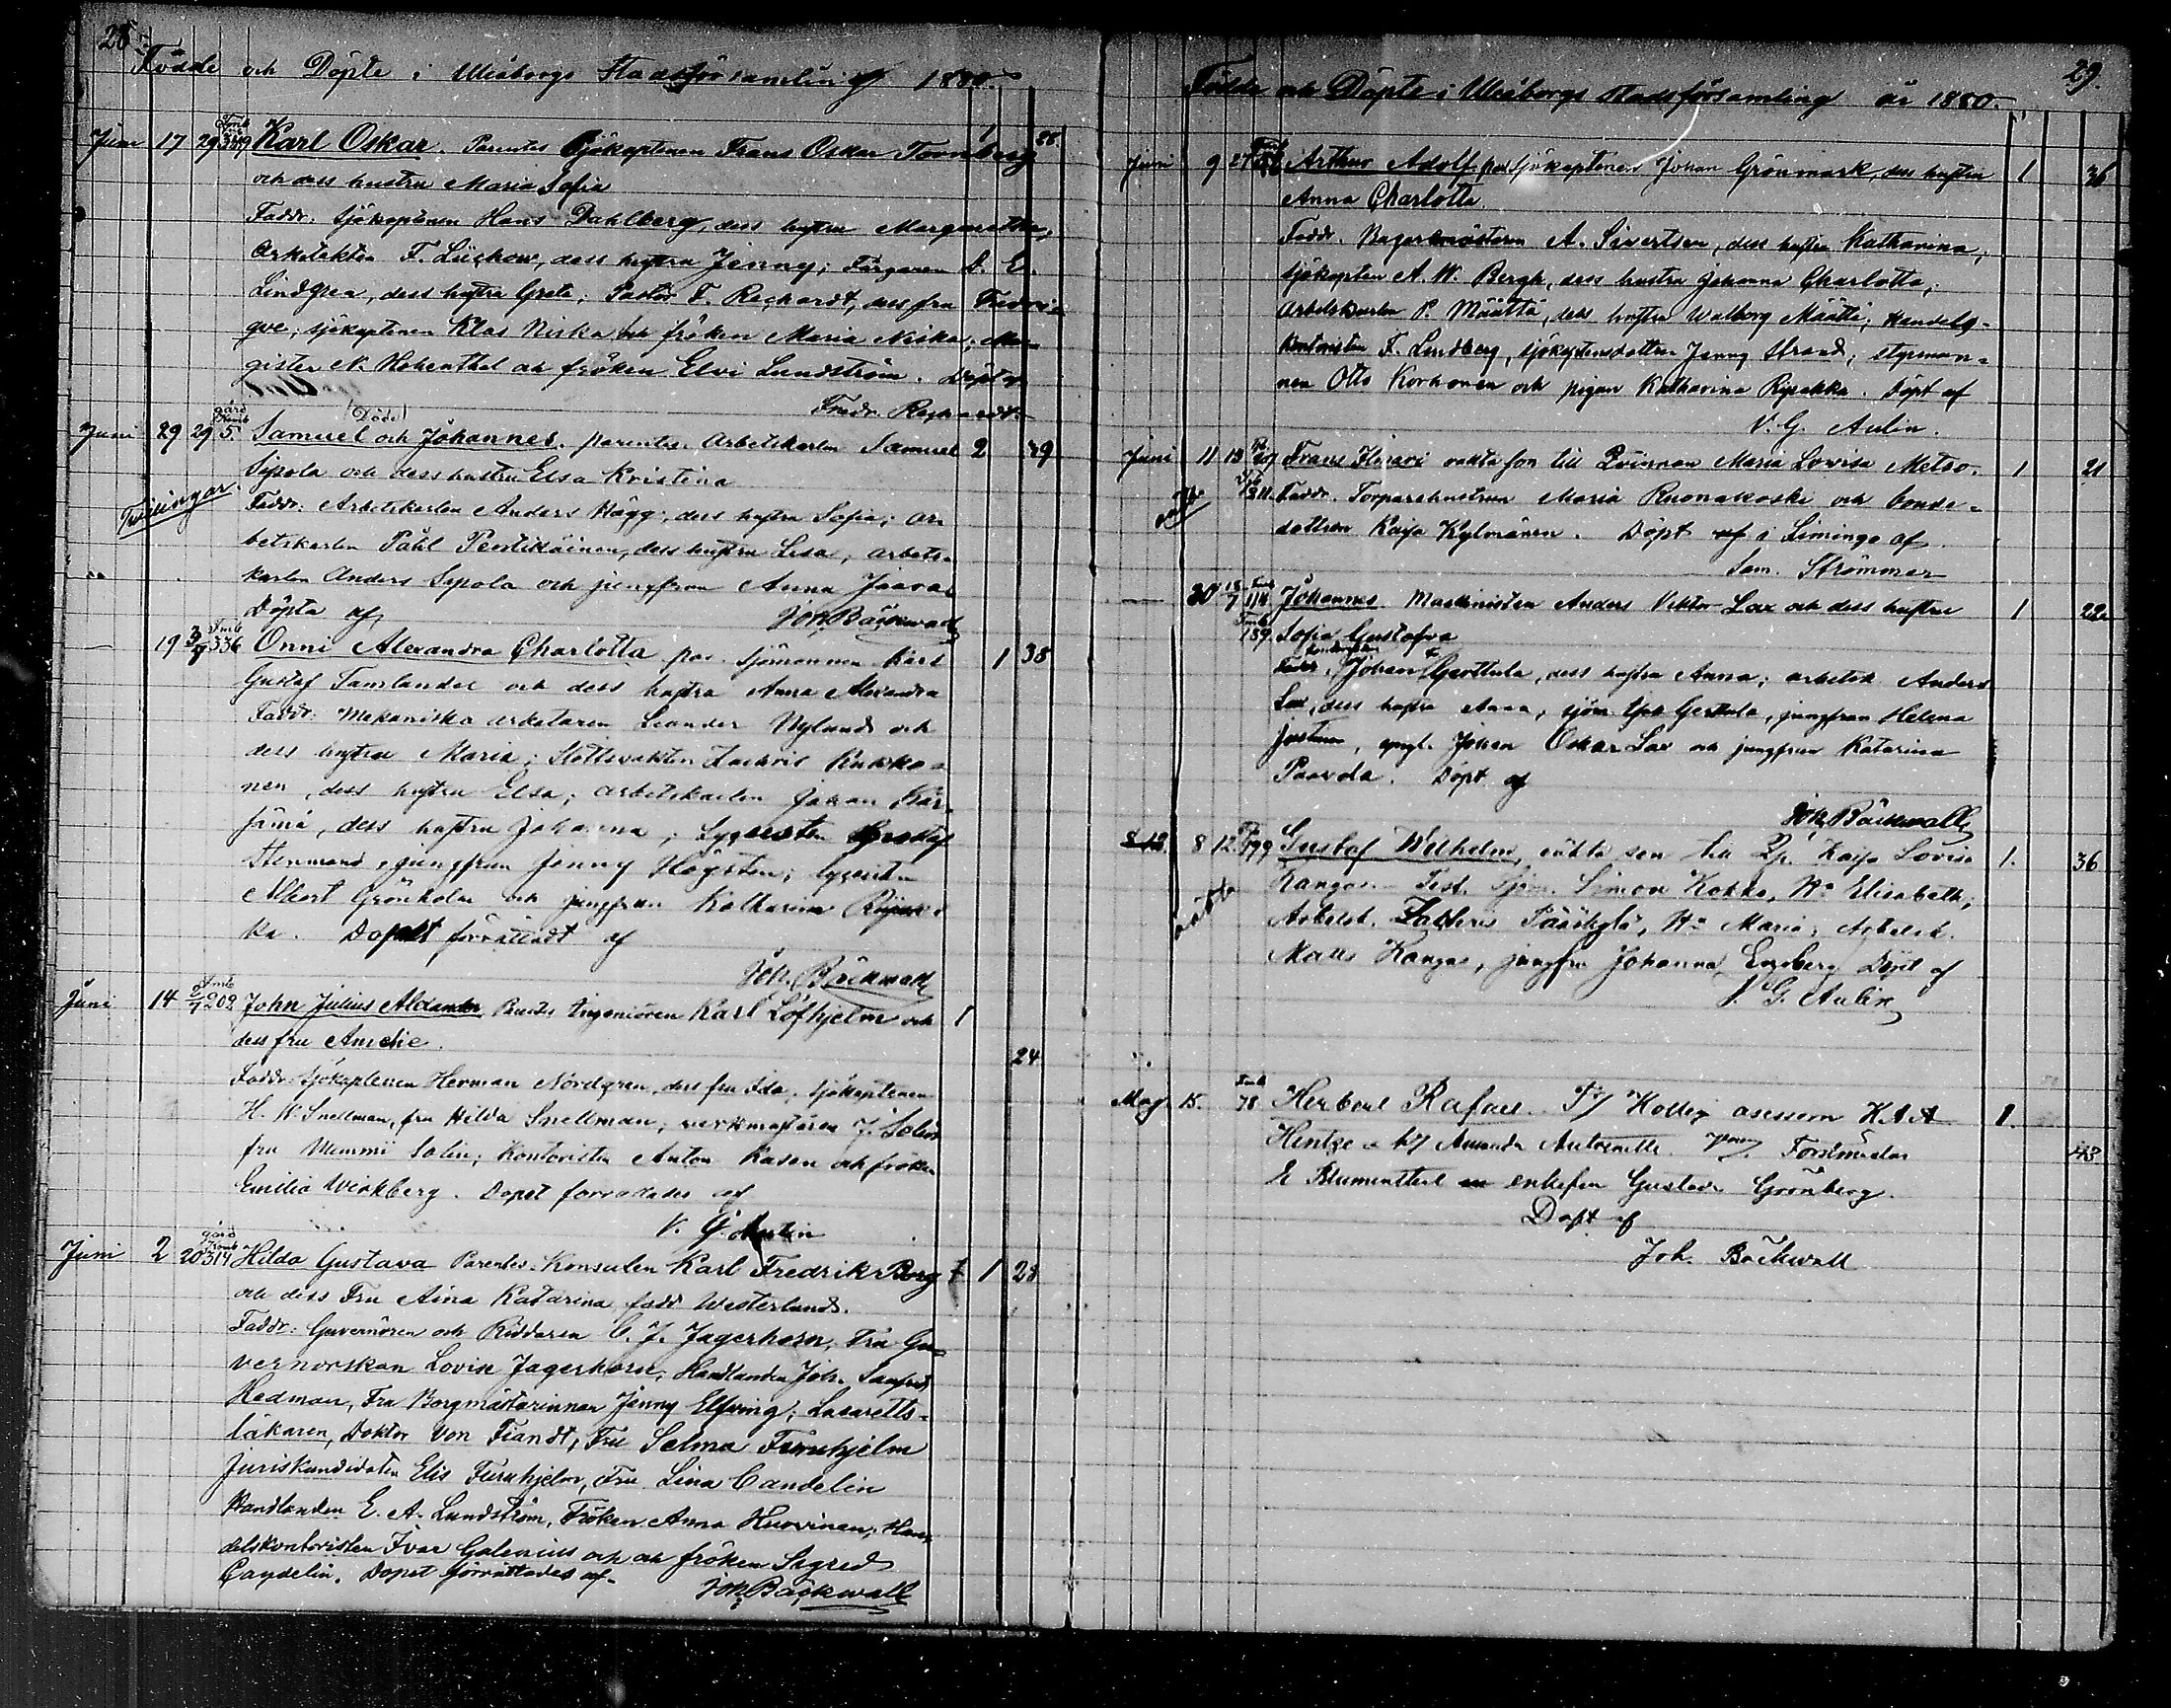 28
Födde och Döpte i Uleåborgs Stadsförsamling 1880.
Juni 17 29 Karl Oskar. Parentes Sjökaptenen Frans Oskar Tornberg 1 28
och dess hustru Maria Sofia
Faddr: Sjökaptenen Hans Dahlberg, dess hustru Margaretha;
Arkitekten F. Lüchow, dess hustru Jenny; Färgaren D. E.
Lindgren, dess hustru Greta; Pastor F. Rechardt, dess fru Fredri-
que; sjökaptenen Klas Niska och fröken Maria Niska; Ma-
gister N. Hohenthal och fröken Elvi Lundström. Döpt af
Fredr. Rechardt
Juni 29 29 gård Tömb 5. Samuel och Johannes (Döde). parentes Arbetskarlen Samuel 2 39
Sipola och dess hustru Elsa Kristina
Tvillingar
Faddr: Arbetskarlen Anders Hägg, dess hustru Sofia; ar-
betskarlen Påhl Pentikäinen, dess hustru Lisa; arbets-
karlen Anders Sipola och jungfrun Anna Jaara.
Döpta af Joh. Bäckwall
— 19 3/7 336 Onni Alexandra Charlotta par. Sjömannen Karl 1 38
Gustaf Tamlander och dess hustru Anna Alexandra
Faddr: Mekaniska arbetaren Leander Nylund och
dess hustru Maria; Slottsvakten Zachris Rukka-
nen, dess hustru Elsa; arbetskarlen Johan Kär-
jämä, dess hustru Johanna; Lyceisten Gustaf
Stenman, jungfrun Jenny Högsten; lyceisten
Albert Grönholm och jungfrun Katharina Ripak-
ka. Dopet förrättadt af
Joh. Bäckwall
Juni 14 2/7 202 John Julius Alexander Parentes Ingeniören Karl Löfhjelm och 1
dess fru Amelie.
24
Faddr: Sjökaptenen Herman Nordgren, dess fru Ida; Sjökaptenen
H. W. Snellman, fru Hilda Snellman; verkmästaren J. Solin
fru Memmi Solin; Kontoristen Anton Kasen och fröken
Emilia Wickberg. Dopet förrättades af
V. G. Aulin
Juni 2 20 gård Tömb 314 Hilda Gustava Parentes. Konsulen Karl Fredrik Borg 1 28
och dess Fru Aina Katarina född Westerlund.
Faddr: Guvernören och Riddaren C. J. Jägerhorn, Fru Gu-
vernörskan Lovise Jägerhorn, Handlanden Joh. Sanfrid
Hedman, Fru Borgmästarinnan Jenny Elfving; Lasaretts-
läkaren, Doktor von Fiandt, Fru Selma Furuhjelm
Juriskandidaten Elis Furuhjelm, Fru Lina Candelin
Handlanden E. A. Lundström, Fröken Anna Huovinen; Han-
delskontoristen Ivar Galenius och och fröken Sigrid
Candelin. Dopet förrättades af
Joh. Bäckwall
29.
Födde och Döpte i Uleåborgs stadsförsamling år 1880.
Juni 9 27 Arthur Adolf. par Sjökaptenen Johan Grönmark, dess hustru 1 36
Anna Charlotta.
Faddr. Bagaremästaren A. Sivertsen, dess hustru Katharina;
sjökapten A. W. Bergh, dess hustru Johanna Charlotta;
Arbetskarlen P. Määttä, dess hustru Walborg Määttä; Handels-
kontoristen F. Lindberg, sjökaptensdottern Jenny Strand; styrman-
nen Otto Korhonen och pigan Katharina Ripakka. Döpt af
V. G. Aulin.
Juni 11 13 Frans Ilmari oäkta son till Qvinnan Maria Lovisa Metso. 1 21
oäkta
Faddr. Torparehustrun Maria Ruonakoski och bonde-
dottren Kaisa Kylmänen. Döpt af i Limingo af
Sam. Strömmer
— 20 18/7 114 Johannes. Maskinisten Anders Viktor Lax och dess hustru 1 22
189. Sofia Gustafva
Faddr. Johan Gerttula, dess hustru Anna; arbetsk. Anders
Lax, dess hustru Anna; sjöm. Gerttula, jungfrun Helena
, yngl. Johan Oskar Lax och jungfrun Katarina
Paavola. Döpt af
Joh. Bäckwall
8 12 199 Gustaf Wilhelm, oäkta son till Qp. Kaisa Lovisa 1. 36
oäkta
Kangas. Test. Sjöm. Simon Kokko, Hu Elisabeth;
Arbetsk. Zachris Pääskylä, Hu Maria; Arbetsk.
Matts Kangas, jungfru Johanna Engberg. Döpt af
V. G. Aulin
Maj 15. 78 Herbert Rafael. P/ Kollegi asessorn K. A. A 1.
Hintze o h/ Amanda Antoinette. Forstmästar 43
E Blumenthal enkefru Gustava Grönberg.
Döpt af
Joh. Bäckwall